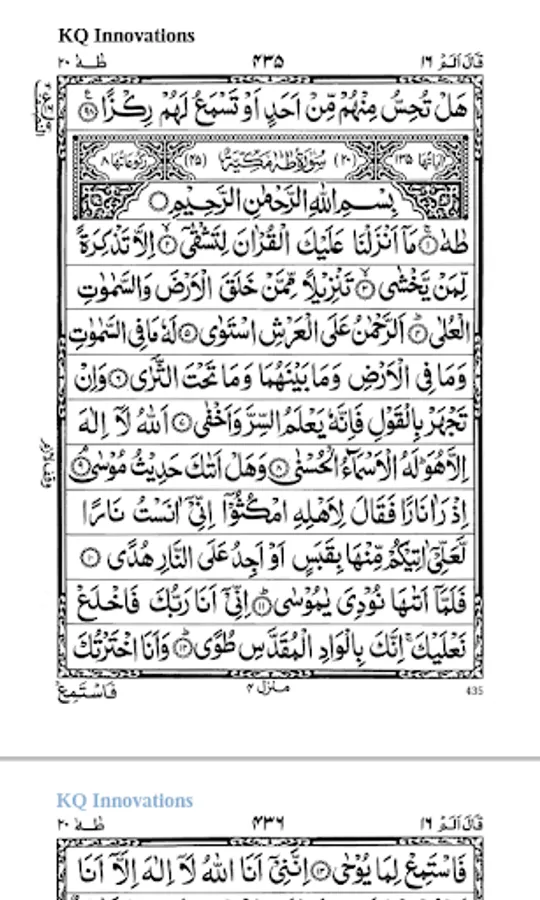 KQ Innovations
طٰهٰ ٢٠ ۴۳۵ قَالَ اَلَمْ ١٦
هَلْ تُحِسُّ مِنْهُمْ مِّنْ اَحَدٍ اَوْ تَسْمَعُ لَهُمْ رِكْزًا ۝٩٨
اٰيَاتُهَا ١٣٥ (٢٠) سُوْرَةُ طٰهٰ مَكِّيَّةٌ (٤٥) رُكُوْعَاتُهَا ٨
بِسْمِ اللّٰهِ الرَّحْمٰنِ الرَّحِيْمِ
طٰهٰ ۝١ مَاۤ اَنْزَلْنَا عَلَيْكَ الْقُرْاٰنَ لِتَشْقٰۤى ۝٢ اِلَّا تَذْكِرَةً
لِّمَنْ يَّخْشٰى ۝٣ تَنْزِيْلًا مِّمَّنْ خَلَقَ الْاَرْضَ وَالسَّمٰوٰتِ
الْعُلٰى ۝٤ اَلرَّحْمٰنُ عَلَى الْعَرْشِ اسْتَوٰى ۝٥ لَهٗ مَا فِى السَّمٰوٰتِ
وَمَا فِى الْاَرْضِ وَمَا بَيْنَهُمَا وَمَا تَحْتَ الثَّرٰى ۝٦ وَاِنْ
تَجْهَرْ بِالْقَوْلِ فَاِنَّهٗ يَعْلَمُ السِّرَّ وَاَخْفٰى ۝٧ اَللّٰهُ لَاۤ اِلٰهَ
اِلَّا هُوَ ؕ لَهُ الْاَسْمَآءُ الْحُسْنٰى ۝٨ وَهَلْ اَتٰىكَ حَدِيْثُ مُوْسٰى ۝٩
اِذْ رَاٰ نَارًا فَقَالَ لِاَهْلِهِ امْكُثُوْۤا اِنِّىْۤ اٰنَسْتُ نَارًا
لَّعَلِّىْۤ اٰتِيْكُمْ مِّنْهَا بِقَبَسٍ اَوْ اَجِدُ عَلَى النَّارِ هُدًى ۝١٠
فَلَمَّاۤ اَتٰىهَا نُوْدِىَ يٰمُوْسٰى ۝١١ اِنِّىْۤ اَنَا رَبُّكَ فَاخْلَعْ
نَعْلَيْكَ ۚ اِنَّكَ بِالْوَادِ الْمُقَدَّسِ طُوًى ۝١٢ وَاَنَا اخْتَرْتُكَ
فَاسْتَمِعْ منزل ۴ 435
KQ Innovations
طٰهٰ ٢٠ ۴۳۶ قَالَ اَلَمْ ١٦
فَاسْتَمِعْ لِمَا يُوْحٰى ۝١٣ اِنَّنِىْۤ اَنَا اللّٰهُ لَاۤ اِلٰهَ اِلَّاۤ اَنَا